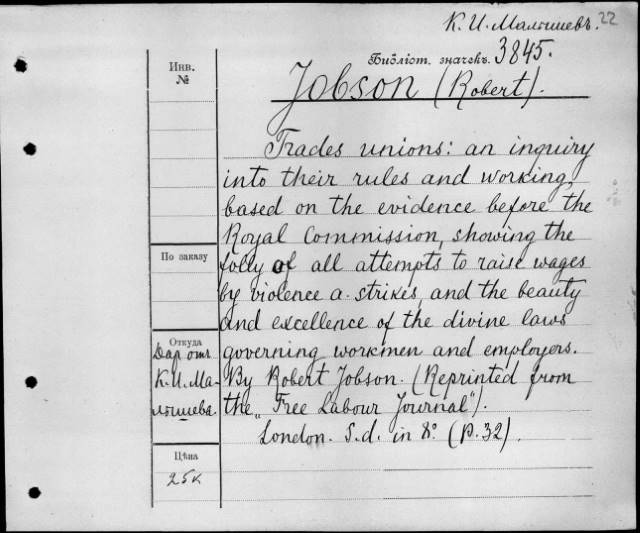 К. И. Малышевъ. 22
Библіот. значекъ. 3845.
Инв.
№
Jobson (Robert).
Trades unions: an inquiry
into their rules and working,
based on the evidence before the
Royal Commission, showing the
folly of all attempts to raise wages
by violence a. strikes, and the beauty
and excellence of the divine laws
governing workmen and employers.
By Robert Jobson. (Reprinted from
the „Free Labour Journal").
London. S.d. in 8º. (p. 32).
По заказу
Откуда
Даръ отъ
К. И. Ма-
лышева
Цѣна
25 к